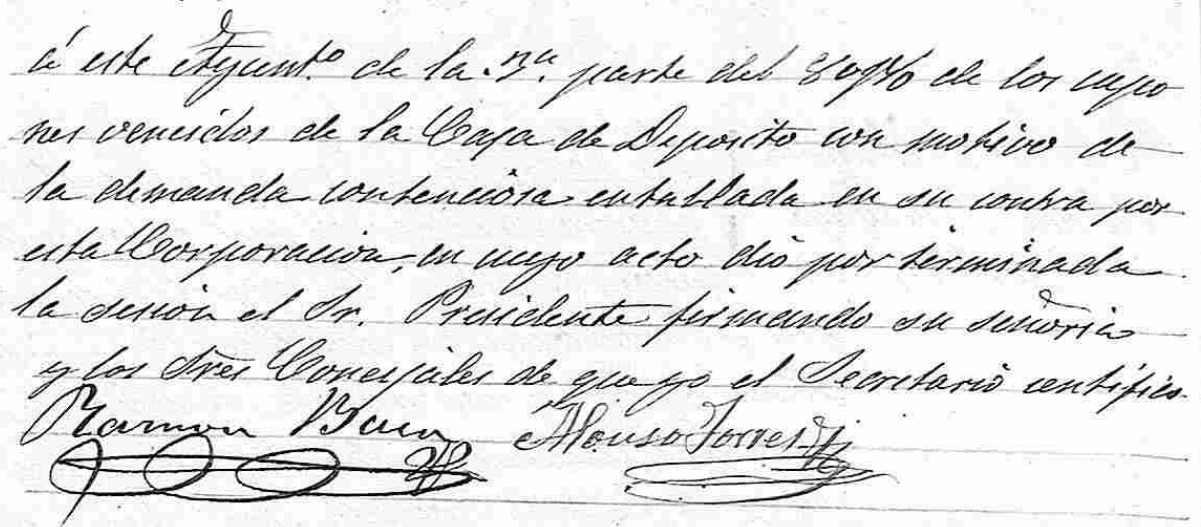 á este Ayunt.º de la 3.ª parte del 80 p% de los cupo
nes vencidos de la Caja de Deposito con motivo de
la demanda contenciosa entablada en su contra por
esta Corporacion, en cuyo acto dió por terminada
la sesión el Sr. Presidente firmando su señoria
y los Sres Concejales de que yo el Secretario certifico.
Ramon Alonso Torres